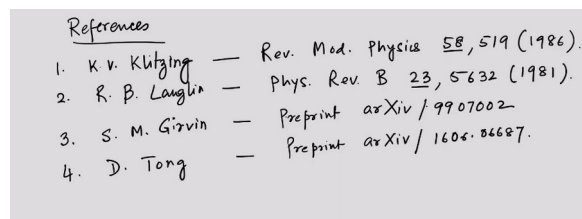 References
1. K. v. Klitzing — Rev. Mod. Physics 58, 519 (1986).
2. R. B. Lauglin — Phys. Rev. B 23, 5632 (1981).
3. S. M. Girvin — Preprint arXiv / 9907002
4. D. Tong — Preprint arXiv / 1606.06687.